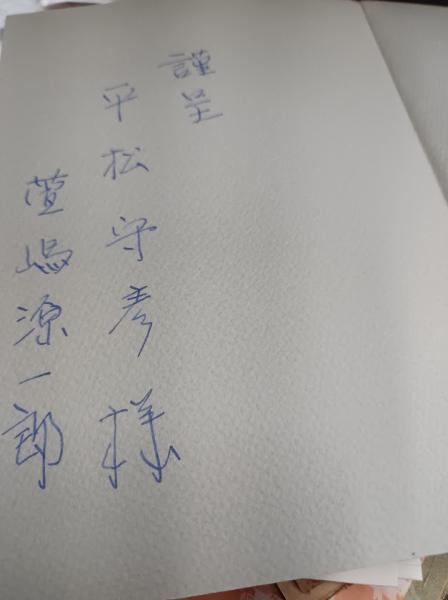 謹呈
平松守彦様
萱嶋源一郎